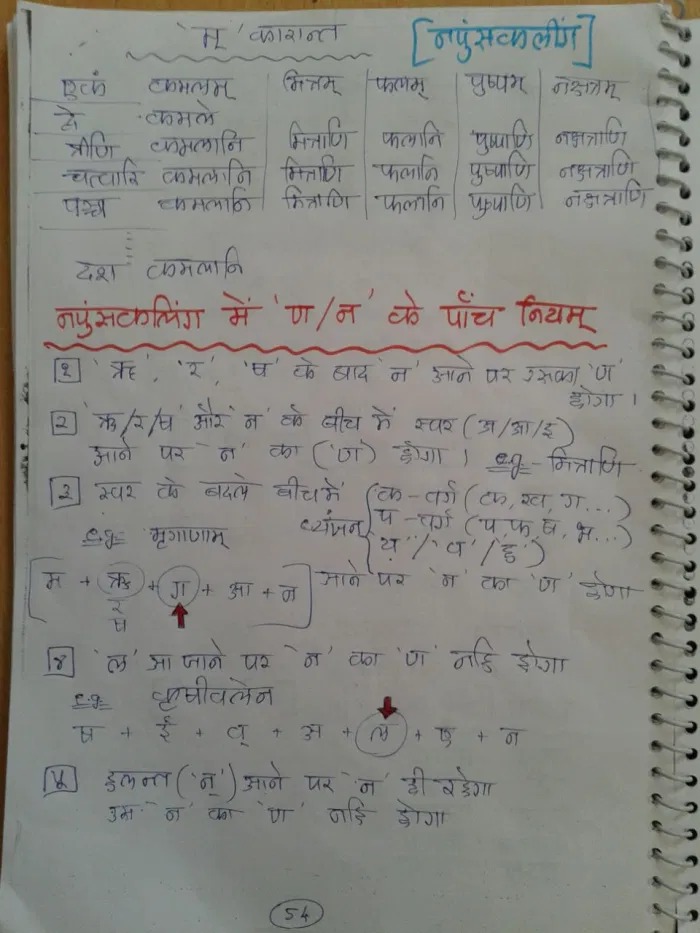 'म्' कारान्त [नपुंसकलींग]
एकं कमलम् मित्रम् फलम् पुष्पम् नक्षत्रम्
द्वे कमले
त्रीणि कमलानि मित्राणि फलानि पुष्पाणि नक्षत्राणि
चत्वारि कमलानि मित्राणि फलानि पुष्पाणि नक्षत्राणि
पञ्च कमलानि मित्राणि फलानि पुष्पाणि नक्षत्राणि
दश कमलानि
नपुंसकलिंग में 'ण/न' के पाँच नियम्
१ 'ऋ', 'र', 'ष' के बाद 'न' आने पर उसका 'ण'
होगा।
२ 'ऋ/र/ष' और 'न' के बीच में स्वर (अ/आ/इ)
आने पर 'न' का ('ण') होगा। e.g- मित्राणि
३ स्वर के बदले बीच में व्यंजन (क-वर्ग (क, ख, ग...)
प-वर्ग (प, फ, ब, भ...)
'य'/'व'/'ह')
e.g- मृगाणाम्
[म + ऋ + ग + आ + न] आने पर 'न' का 'ण' होगा
र
ष
४ 'ल' आ जाने पर 'न' का 'ण' नहि होगा
e.g- कृषीवलेन
ष + ई + व् + अ + ल + ए + न
५ हलन्त ('न्') आने पर 'न' ही रहेगा
उस 'न' का 'ण' नहि होगा
54